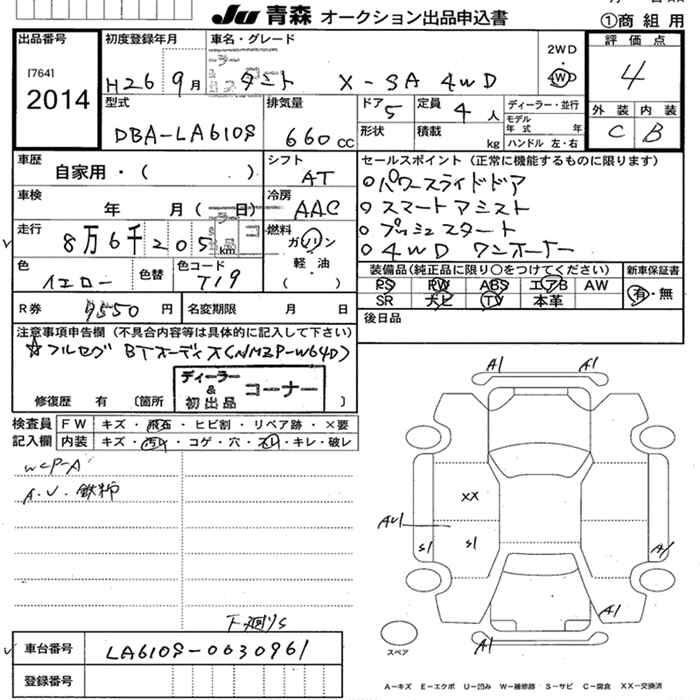 JU 青森 オークション出品申込書
①商組用
出品番号
[764]
2014
初度登録年月
H26 9月
車名・グレード
タント X-SA 4WD
2WD
4WD
評価点
4
外装 内装
C B
型式
DBA-LA610S
排気量
660cc
ドア 5
定員 4人
形状
積載 kg
ディーラー・並行
モデル年式 年
ハンドル 左・右
車歴
自家用・( )
シフト
AT
車検
年 月( 日)
冷房
AAC
走行
8万6千205km
燃料
ガソリン
軽・油
( )
色
イエロー
色替
色コード
T19
セールスポイント(正常に機能するものに限ります)
○パワースライドドア
○スマートアシスト
○プッシュスタート
○4WD ワンオーナー
装備品(純正品に限り○をつけてください)
新車保証書
PS PW ABS エアB AW
SR ナビ TV 本革
有・無
R券 9550円
名変期限 月 日
後日品
注意事項申告欄(不具合内容等は具体的に記入して下さい)
☆フルセグ BTオーディオ(NMZP-W64D)
修復歴 有 〔箇所 〕
ディーラー & 初出品 コーナー
検査員記入欄
FW キズ・飛石・ヒビ割・リペア跡・×要
内装 キズ・汚れ・コゲ・穴・スレ・キレ・破レ
WCP-A
A.U.鉄粉
下廻りS
A1 A1
XX
AU1
S1 S1
A1
A1
A1
スペア
車台番号
LA610S-0030961
登録番号
A-キズ E-エクボ U-凹み W-補修跡 S-サビ C-腐食 XX-交換済